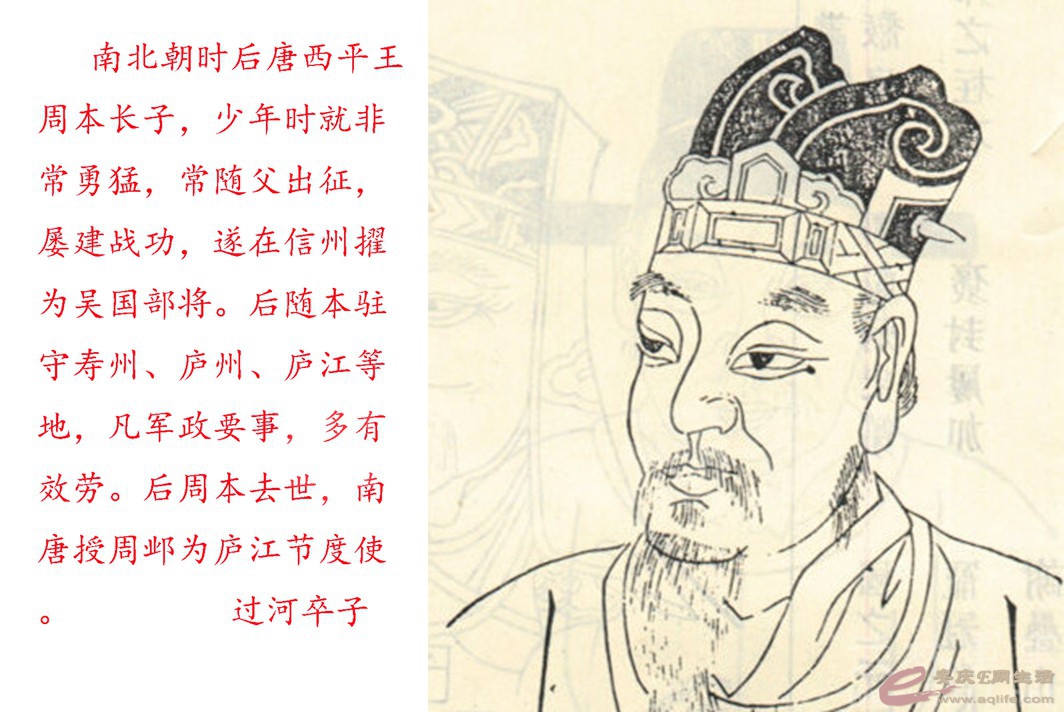 南北朝时后唐西平王
周本长子，少年时就非
常勇猛，常随父出征，
屡建战功，遂在信州擢
为吴国部将。后随本驻
守寿州、庐州、庐江等
地，凡军政要事，多有
效劳。后周本去世，南
唐授周邺为庐江节度使
。 过河卒子
褒封屡加
安庆E网生活
www.aqlife.com